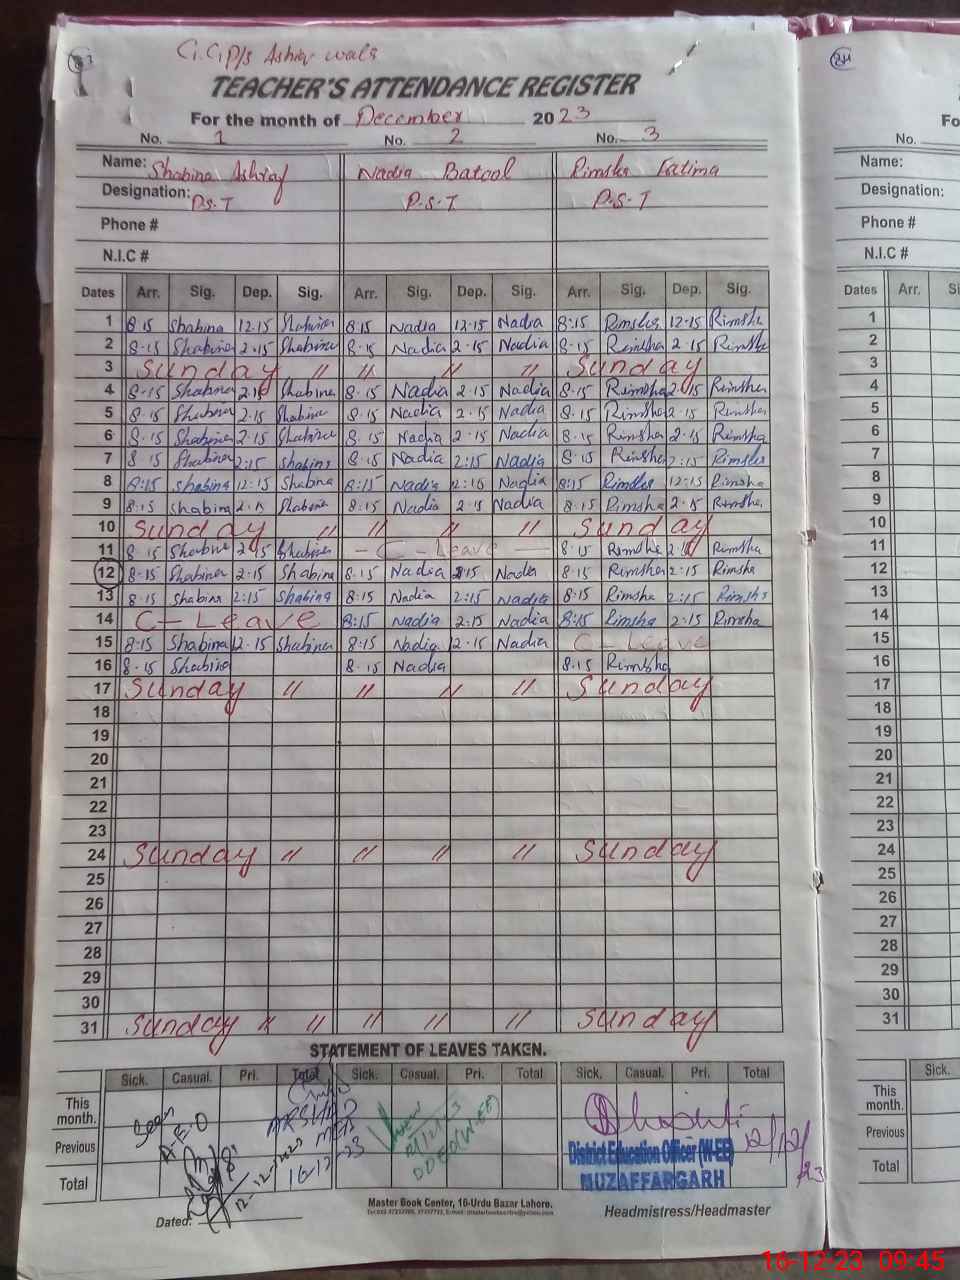 G.G.P/S Asher wala
TEACHER'S ATTENDANCE REGISTER
For the month of December 2023
No. 1 No. 2 No. 3
Name: Shabina Ashraf Nadia Batool Rimsha Fatima
Designation: P.S.T P.S.T P.S.T
Phone #
N.I.C #
Dates Arr. Sig. Dep. Sig. Arr. Sig. Dep. Sig. Arr. Sig. Dep. Sig.
1 8:15 Shabina 12-15 Shabina 8:15 Nadia 12-15 Nadia 8:15 Rimsha 12-15 Rimsha
2 8-15 Shabina 2-15 Shabina 8-15 Nadia 2-15 Nadia 8-15 Rimsha 2-15 Rimsha
3 Sunday " " " " Sunday
4 8-15 Shabina 2-15 Shabina 8-15 Nadia 2-15 Nadia 8-15 Rimsha 2-15 Rimsha
5 8-15 Shabina 2-15 Shabina 8-15 Nadia 2-15 Nadia 8-15 Rimsha 2-15 Rimsha
6 8-15 Shabina 2-15 Shabina 8-15 Nadia 2-15 Nadia 8-15 Rimsha 2-15 Rimsha
7 8-15 Shabina 2:15 Shabina 8-15 Nadia 2:15 Nadia 8-15 Rimsha 2:15 Rimsha
8 8:15 Shabina 12:15 Shabina 8:15 Nadia 12:15 Nadia 8:15 Rimsha 12:15 Rimsha
9 8:15 Shabina 2-15 Shabina 8:15 Nadia 2-15 Nadia 8-15 Rimsha 2-15 Rimsha
10 Sunday " " " " Sunday
11 8-15 Shabina 2-15 Shabina - C - Leave - 8-15 Rimsha 2-15 Rimsha
12 8-15 Shabina 2-15 Shabina 8-15 Nadia 2-15 Nadia 8-15 Rimsha 2-15 Rimsha
13 8-15 Shabina 2:15 Shabina 8:15 Nadia 2:15 Nadia 8:15 Rimsha 2:15 Rimsha
14 C - Leave 8:15 Nadia 2:15 Nadia 8:15 Rimsha 2:15 Rimsha
15 8:15 Shabina 12-15 Shabina 8:15 Nadia 12-15 Nadia C - Leave
16 8-15 Shabina 8-15 Nadia 8-15 Rimsha
17 Sunday " " " " Sunday
18
19
20
21
22
23
24 Sunday " " " " Sunday
25
26
27
28
29
30
31 Sunday " " " " " Sunday
STATEMENT OF LEAVES TAKEN.
Sick. Casual. Pri. Total Sick. Casual. Pri. Total Sick. Casual. Pri. Total
This month.
Previous
Total
Seen
A-E-O
12-12-2023
ARSHAD
MEA
16-12-23
DDEO(W-EE)
District Education Officer (W-EE)
MUZAFFARGARH
12/12/23
Dated:
Master Book Center, 16-Urdu Bazar Lahore.
Headmistress/Headmaster
24
No.
Name:
Designation:
Phone #
N.I.C #
Dates Arr.
1
2
3
4
5
6
7
8
9
10
11
12
13
14
15
16
17
18
19
20
21
22
23
24
25
26
27
28
29
30
31
Sick.
This month.
Previous
Total
16-12-23 09:45